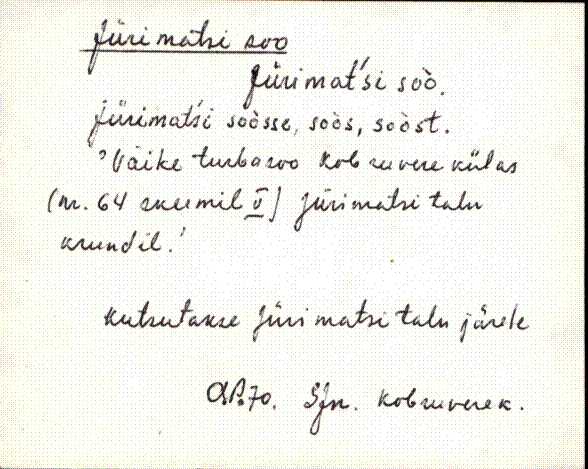 Jürimatsi soo
Jürimat́si soò.
Jürimat́si soòsse, soòs, soòst.
'Väike turbasoo Kobruvere külas
(nr. 64 skeemil V) Jürimatsi talu
krundil.'
Kutsutakse Jürimatsi talu järele
Kobruvere k.